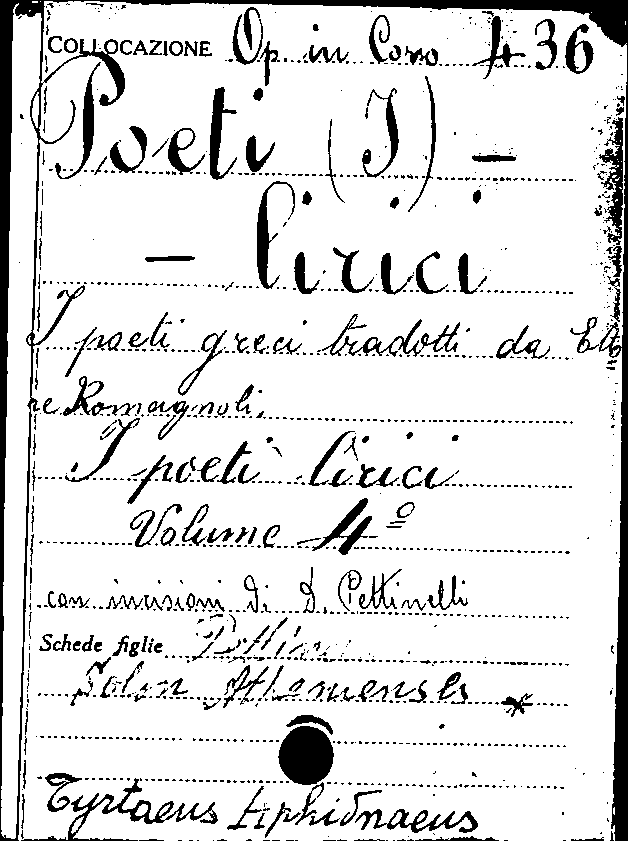 COLLOCAZIONE Op in Corso 436
Poeti (I) -
- lirici
I poeti greci tradotti da Etto
re Romagnoli.
I poeti lirici
Volume 4º
con incisioni di D. Pettinelli
Schede figlie
Solon Atheniensis *
Tyrtaeus Aphidnaeus